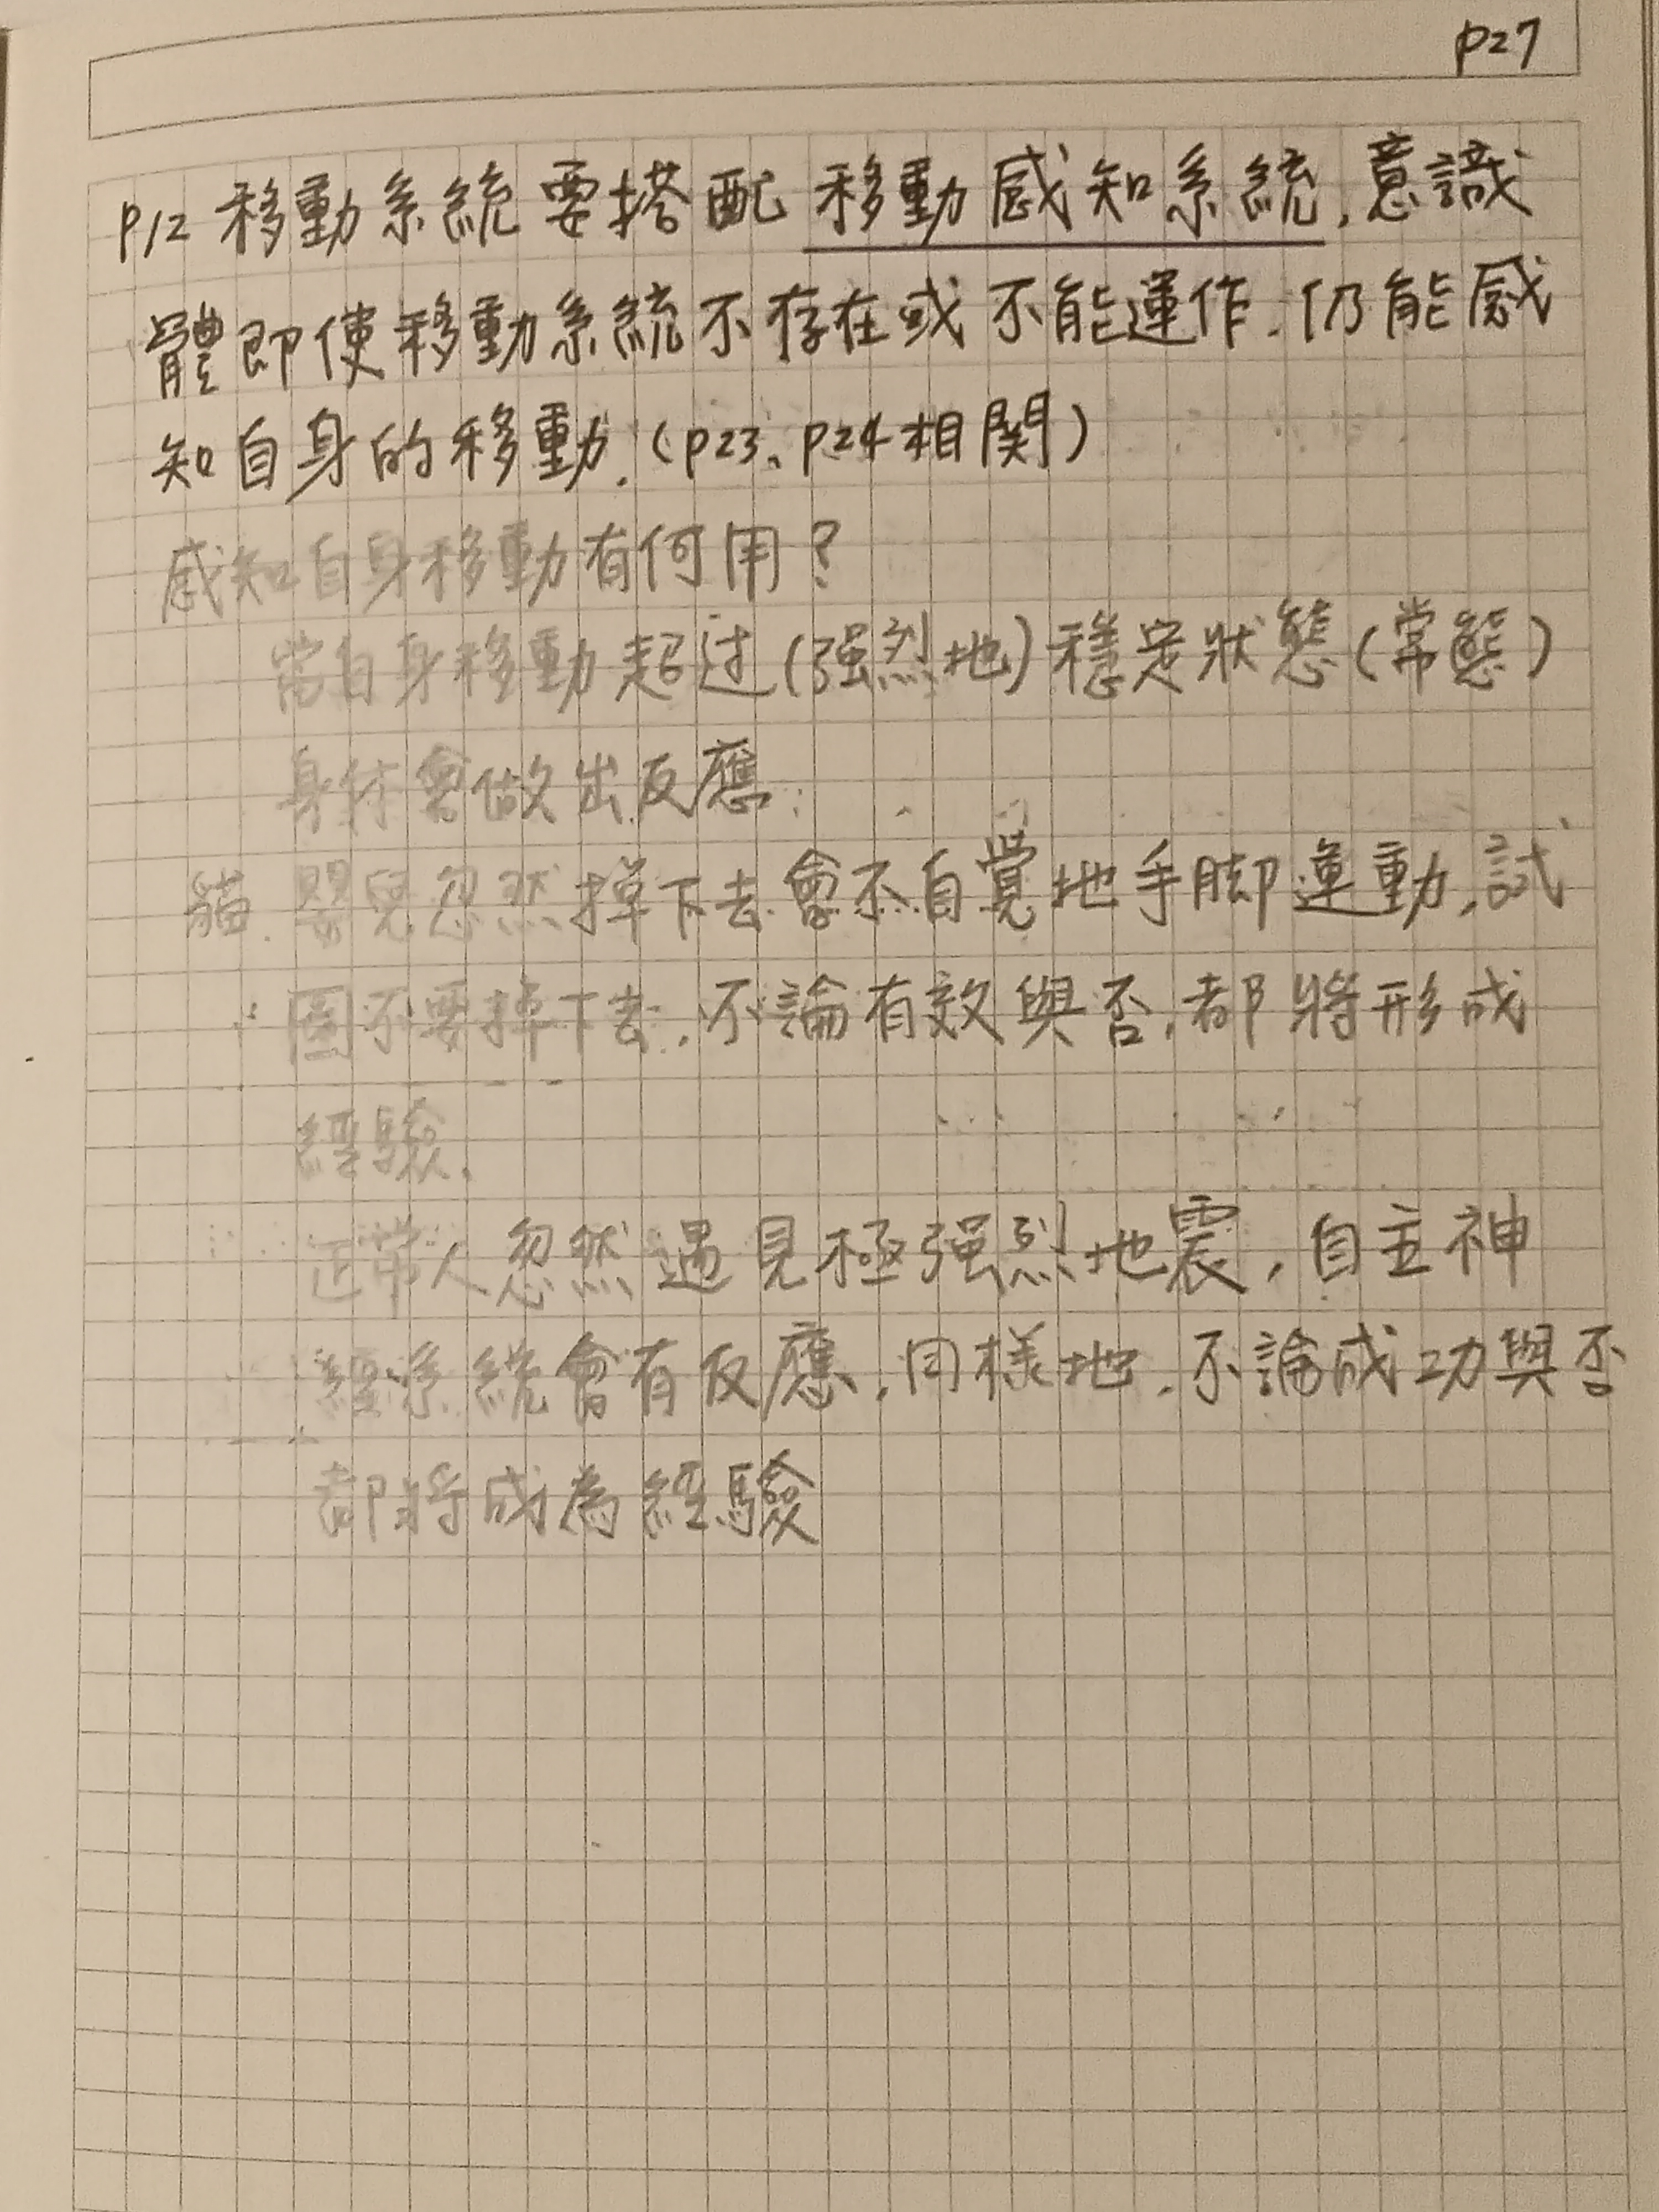 p27
p12 移動系統要搭配移動感知系統,意識
體即使移動系統不存在或不能運作.仍能感
知自身的移動.(p23、p24相関)
感知自身移動有何用?
當自身移動超过(强烈地)穩定狀態(常態)
身体會做出反應.
貓、嬰兒忽然掉下去會不自覺地手脚運動,試
圖不要掉下去.不論有效與否,都將形成
經驗.
正常人忽然遇見極强烈地震,自主神
經系統會有反應.同樣地.不論成功與否
都將成為經驗